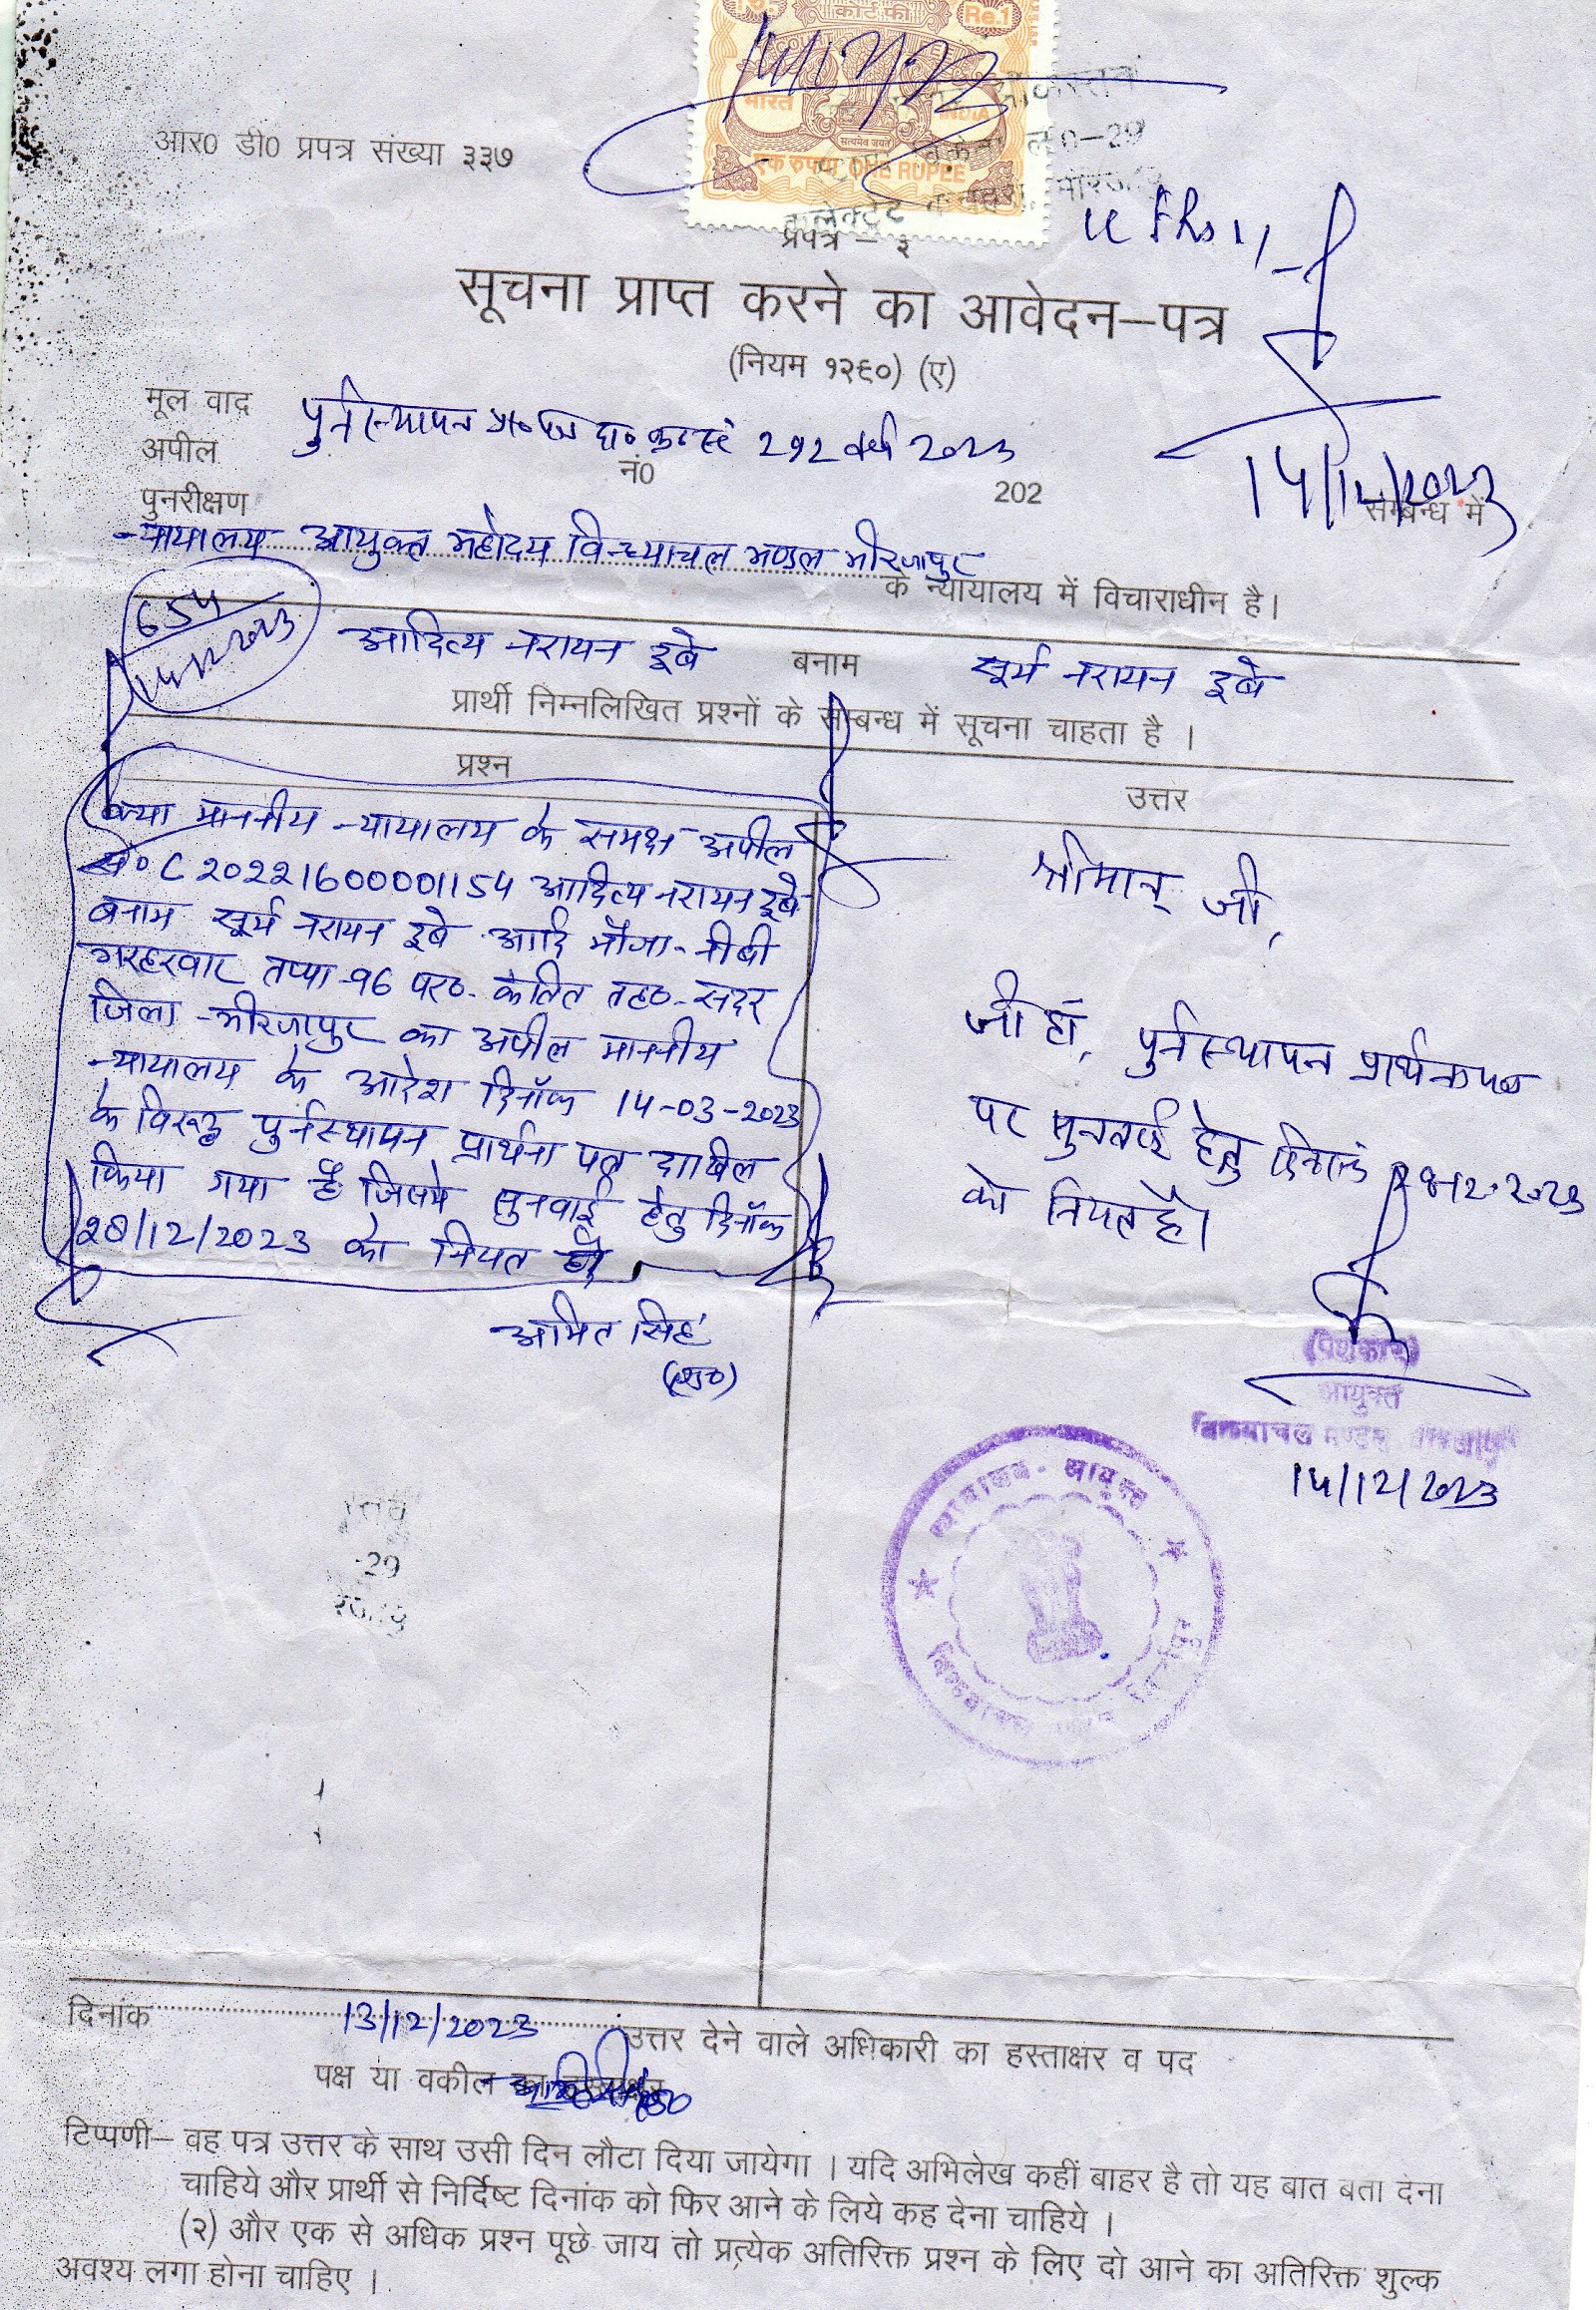 कोर्ट फी
Re.1
भारत INDIA
सत्यमेव जयते
एक रुपया ONE RUPEE
ल0-29
कलेक्ट्रेट
आर0 डी0 प्रपत्र संख्या ३३७
प्रपत्र – ३
सूचना प्राप्त करने का आवेदन–पत्र
(नियम १२६०) (ए)
14/12/2023
मूल वाद
अपील
पुनरीक्षण
पुर्नस्थापन प्रा० पत्र 292 वर्ष 2023
नं0 202 सम्बन्ध में
न्यायालय आयुक्त महोदय विन्ध्याचल मण्डल मीरजापुर
के न्यायालय में विचाराधीन है।
654
14/12/2023
आदित्य नरायन दूबे बनाम सूर्य नरायन दूबे
प्रार्थी निम्नलिखित प्रश्नों के सम्बन्ध में सूचना चाहता है ।
प्रश्न
क्या माननीय न्यायालय के समक्ष अपील
सं० C202216000001154 आदित्य नरायन दूबे
बनाम सूर्य नरायन दूबे आदि मौजा- नीबी
गरहरवार तप्पा-96 पर०- कन्तित तह०-सदर
जिला -मीरजापुर का अपील माननीय
न्यायालय के आदेश दिनॉक 14-03-2023
के विरूद्ध पुर्नस्थापन प्रार्थना पत्र दाखिल
किया गया है जिसमे सुनवाई हेतु दिनॉक
28/12/2023 को नियत है
अमित सिंह
(एड०)
उत्तर
श्रीमान् जी,
जी हाँ, पुर्नस्थापन प्रार्थनापत्र
पर सुनवाई हेतु दिनांक 28-12-2023
को नियत है।
(पेशकार)
आयुक्त
विन्ध्याचल मण्डल मीरजापुर
14/12/2023
न्यायालय- आयुक्त
दिनांक 13/12/2023
उत्तर देने वाले अधिकारी का हस्ताक्षर व पद
पक्ष या वकील का हस्ताक्षर
टिप्पणी– वह पत्र उत्तर के साथ उसी दिन लौटा दिया जायेगा । यदि अभिलेख कहीं बाहर है तो यह बात बता देना
चाहिये और प्रार्थी से निर्दिष्ट दिनांक को फिर आने के लिये कह देना चाहिये ।
(२) और एक से अधिक प्रश्न पूछे जाय तो प्रत्येक अतिरिक्त प्रश्न के लिए दो आने का अतिरिक्त शुल्क
अवश्य लगा होना चाहिए ।